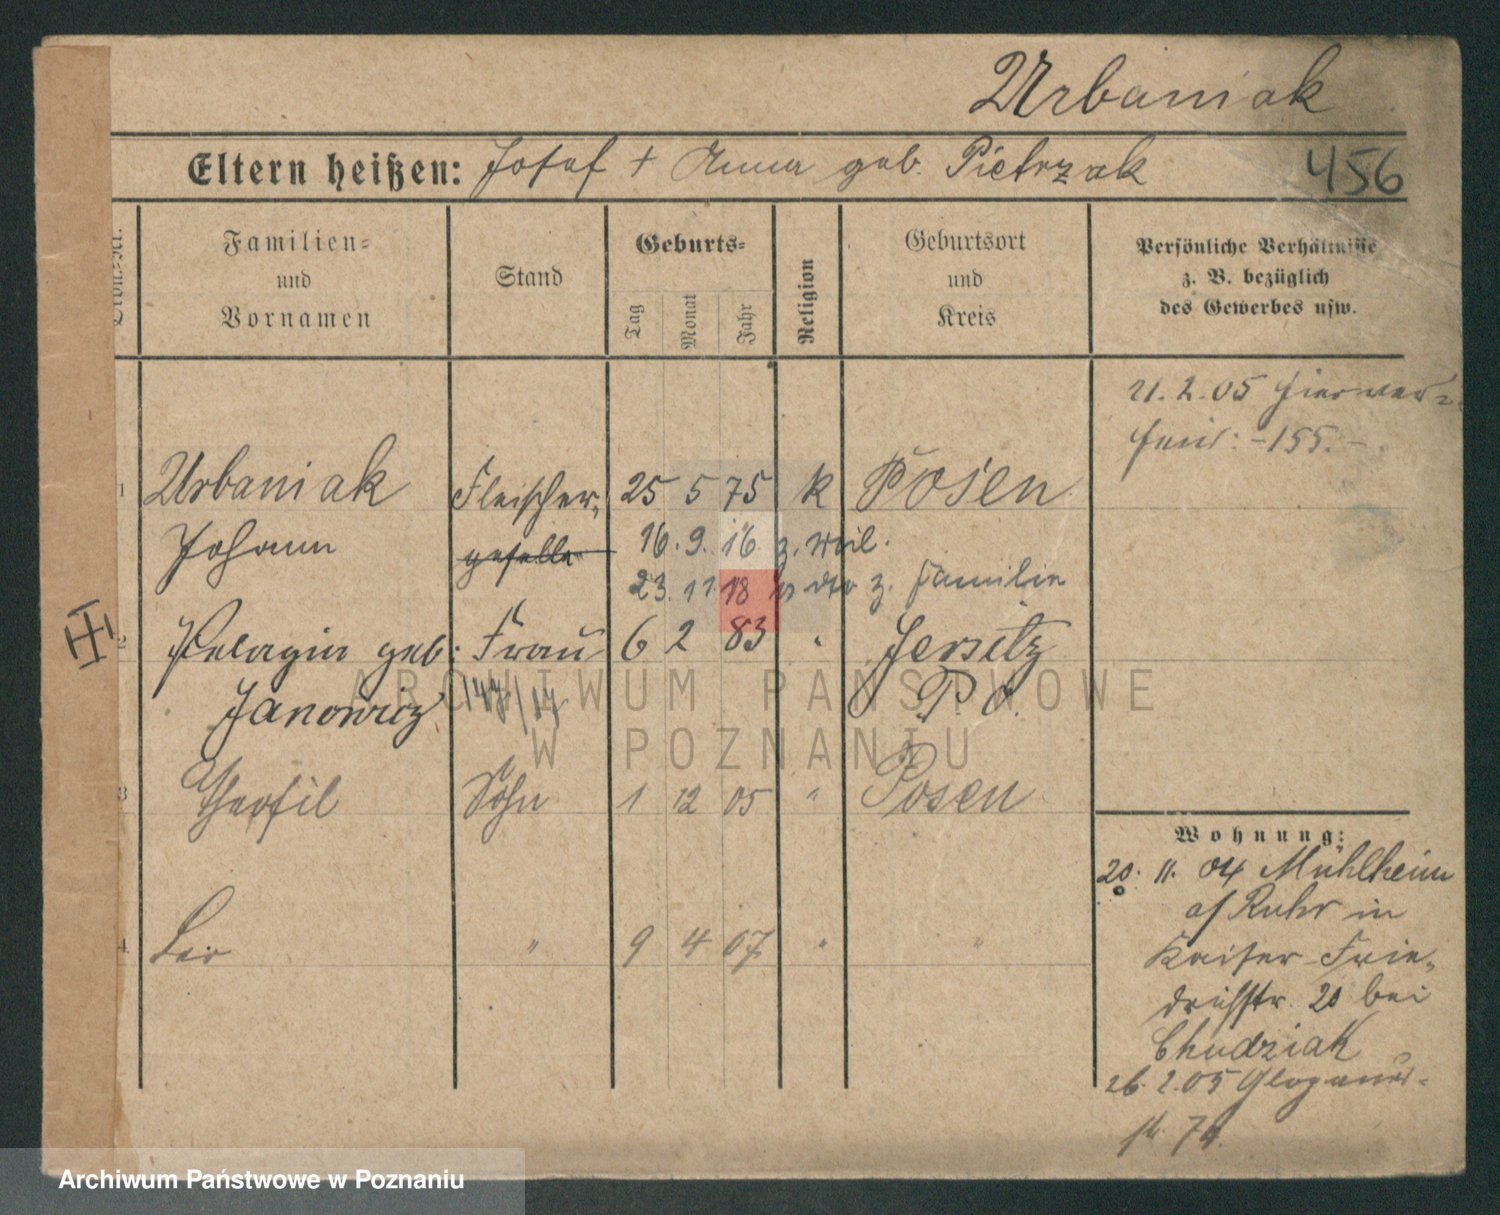 Urbaniak
Eltern heißen: Josef + Anna geb. Pietrzak 456
Familien-
und
Vornamen
Stand
Geburts-
Tag
Monat
Jahr
Religion
Geburtsort
und
Kreis
Persönliche Verhältnisse
z. B. bezüglich
des Gewerbes usw.
21.2.05
-155.-
1 Urbaniak Fleischer- 25 5 75 k Posen
Johann geselle 16.9.16
23.11.18 z. Familie
2 Pelagia geb. Frau 6 2 83 " Jersitz
Janowicz P. O.
ARCHIWUM PAŃSTWOWE
W POZNANIU
3 Theofil Sohn 1 12 05 " Posen
4 Leo " 9 4 07 " "
Wohnung:
20. 11. 04 Mühlheim
a/ Ruhr in
Kaiser Frie-
drichstr. 20 bei
Chudziak
26.2.05 Glogauer-
st. 74.
Archiwum Państwowe w Poznaniu